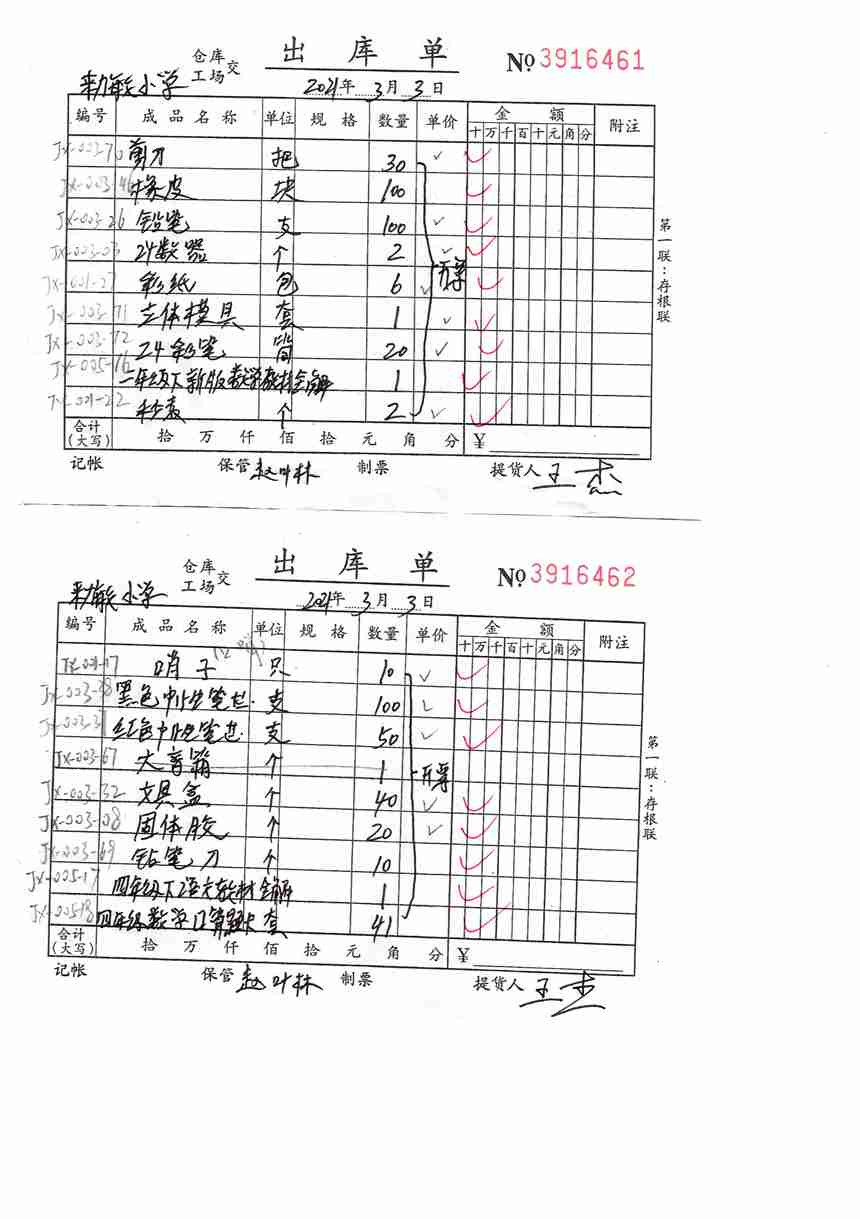 仓库 工场 交 出库单 № 3916461
小学 2021年 3月 3日
编号 成品名称 单位 规格 数量 单价 金额 附注
十 万 千 百 十 元 角 分
JX-003-70 剪刀 把 30
JX-003-46 橡皮 块 100
JX-003-26 铅笔 支 100
JX-003-03 计数器 个 2
JX-001-27 彩纸 包 6
JX-003-71 立体模具 套 1
JX-003-72 24彩笔 筒 20
JX-005-16 一年级下新版数学教材全解 1
JX-001-22 秒表 个 2
合计(大写) 拾 万 仟 佰 拾 元 角 分 ¥
记帐 保管 赵叶林 制票 提货人 王杰
第一联:存根联
仓库 工场 交 出库单 № 3916462
小学 2021年 3月 3日
编号 成品名称 单位 规格 数量 单价 金额 附注
十 万 千 百 十 元 角 分
JX-001-17 哨子 只 10
JX-003-38 黑色中性笔芯 支 100
JX-003-37 红色中性笔芯 支 50
JX-003-67 大音箱 个 1
JX-003-32 文具盒 个 40
JX-003-08 固体胶 个 20
JX-003-69 铅笔刀 个 10
JX-005-17 四年级下语文教材全解 1
JX-005-18 四年级数学口算题卡 套 41
合计(大写) 拾 万 仟 佰 拾 元 角 分 ¥
记帐 保管 赵叶林 制票 提货人 王杰
第一联:存根联